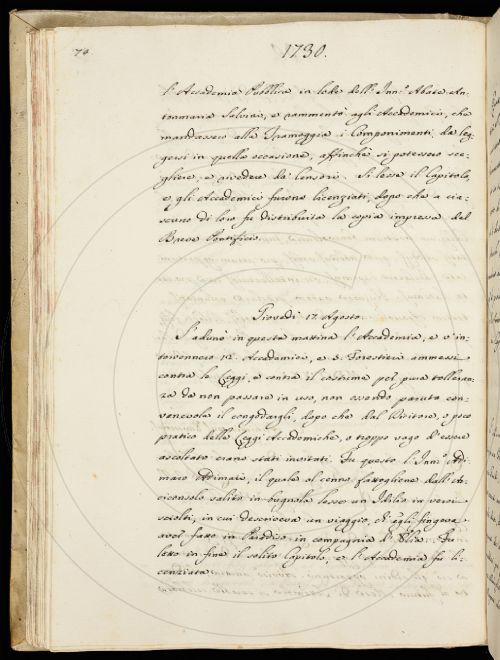 74
1730.
l'Accademia Pubblica in lode dell'Inn.º Abate An-
tonmaria Salvini, e rammentò agli Accademici, che
mandassero alla Tramoggia i Componimenti da leg-
gersi in quella occasione, affinchè si potessero sce-
gliere, e rivedere da' Censori. Si lesse il Capitolo,
e gli Accademici furono licenziati, dopo che a cia-
scuno di loro fu distribuita la copia impressa del
Breve Pontificio.
Giovedì 17. Agosto.
S'adunò in questa mattina l'Accademia, e v'in-
tervennero 12. Accademici, e 3. Forestieri ammessi
contra le Leggi, e contra il costume per pura tolleran-
za da non passare in uso, non essendo paruta con-
venevole il congedargli, dopo che dal Uditore, o poco
pratico delle Leggi Accademiche, o troppo vago d'essere
ascoltato erano stati invitati. Fu questo l'Inn.º Adi-
maro Adimari, il quale al cenno fattogliene dall'Ar-
ciconsolo salito in bugnola lesse un Idilio in versi
sciolti, in cui descriveva un viaggio, ch'egli fingeva
aver fatto in Paradiso in compagnia d'Elia. Fu
letto in fine il solito Capitolo, e l'Accademia fu li-
cenziata.